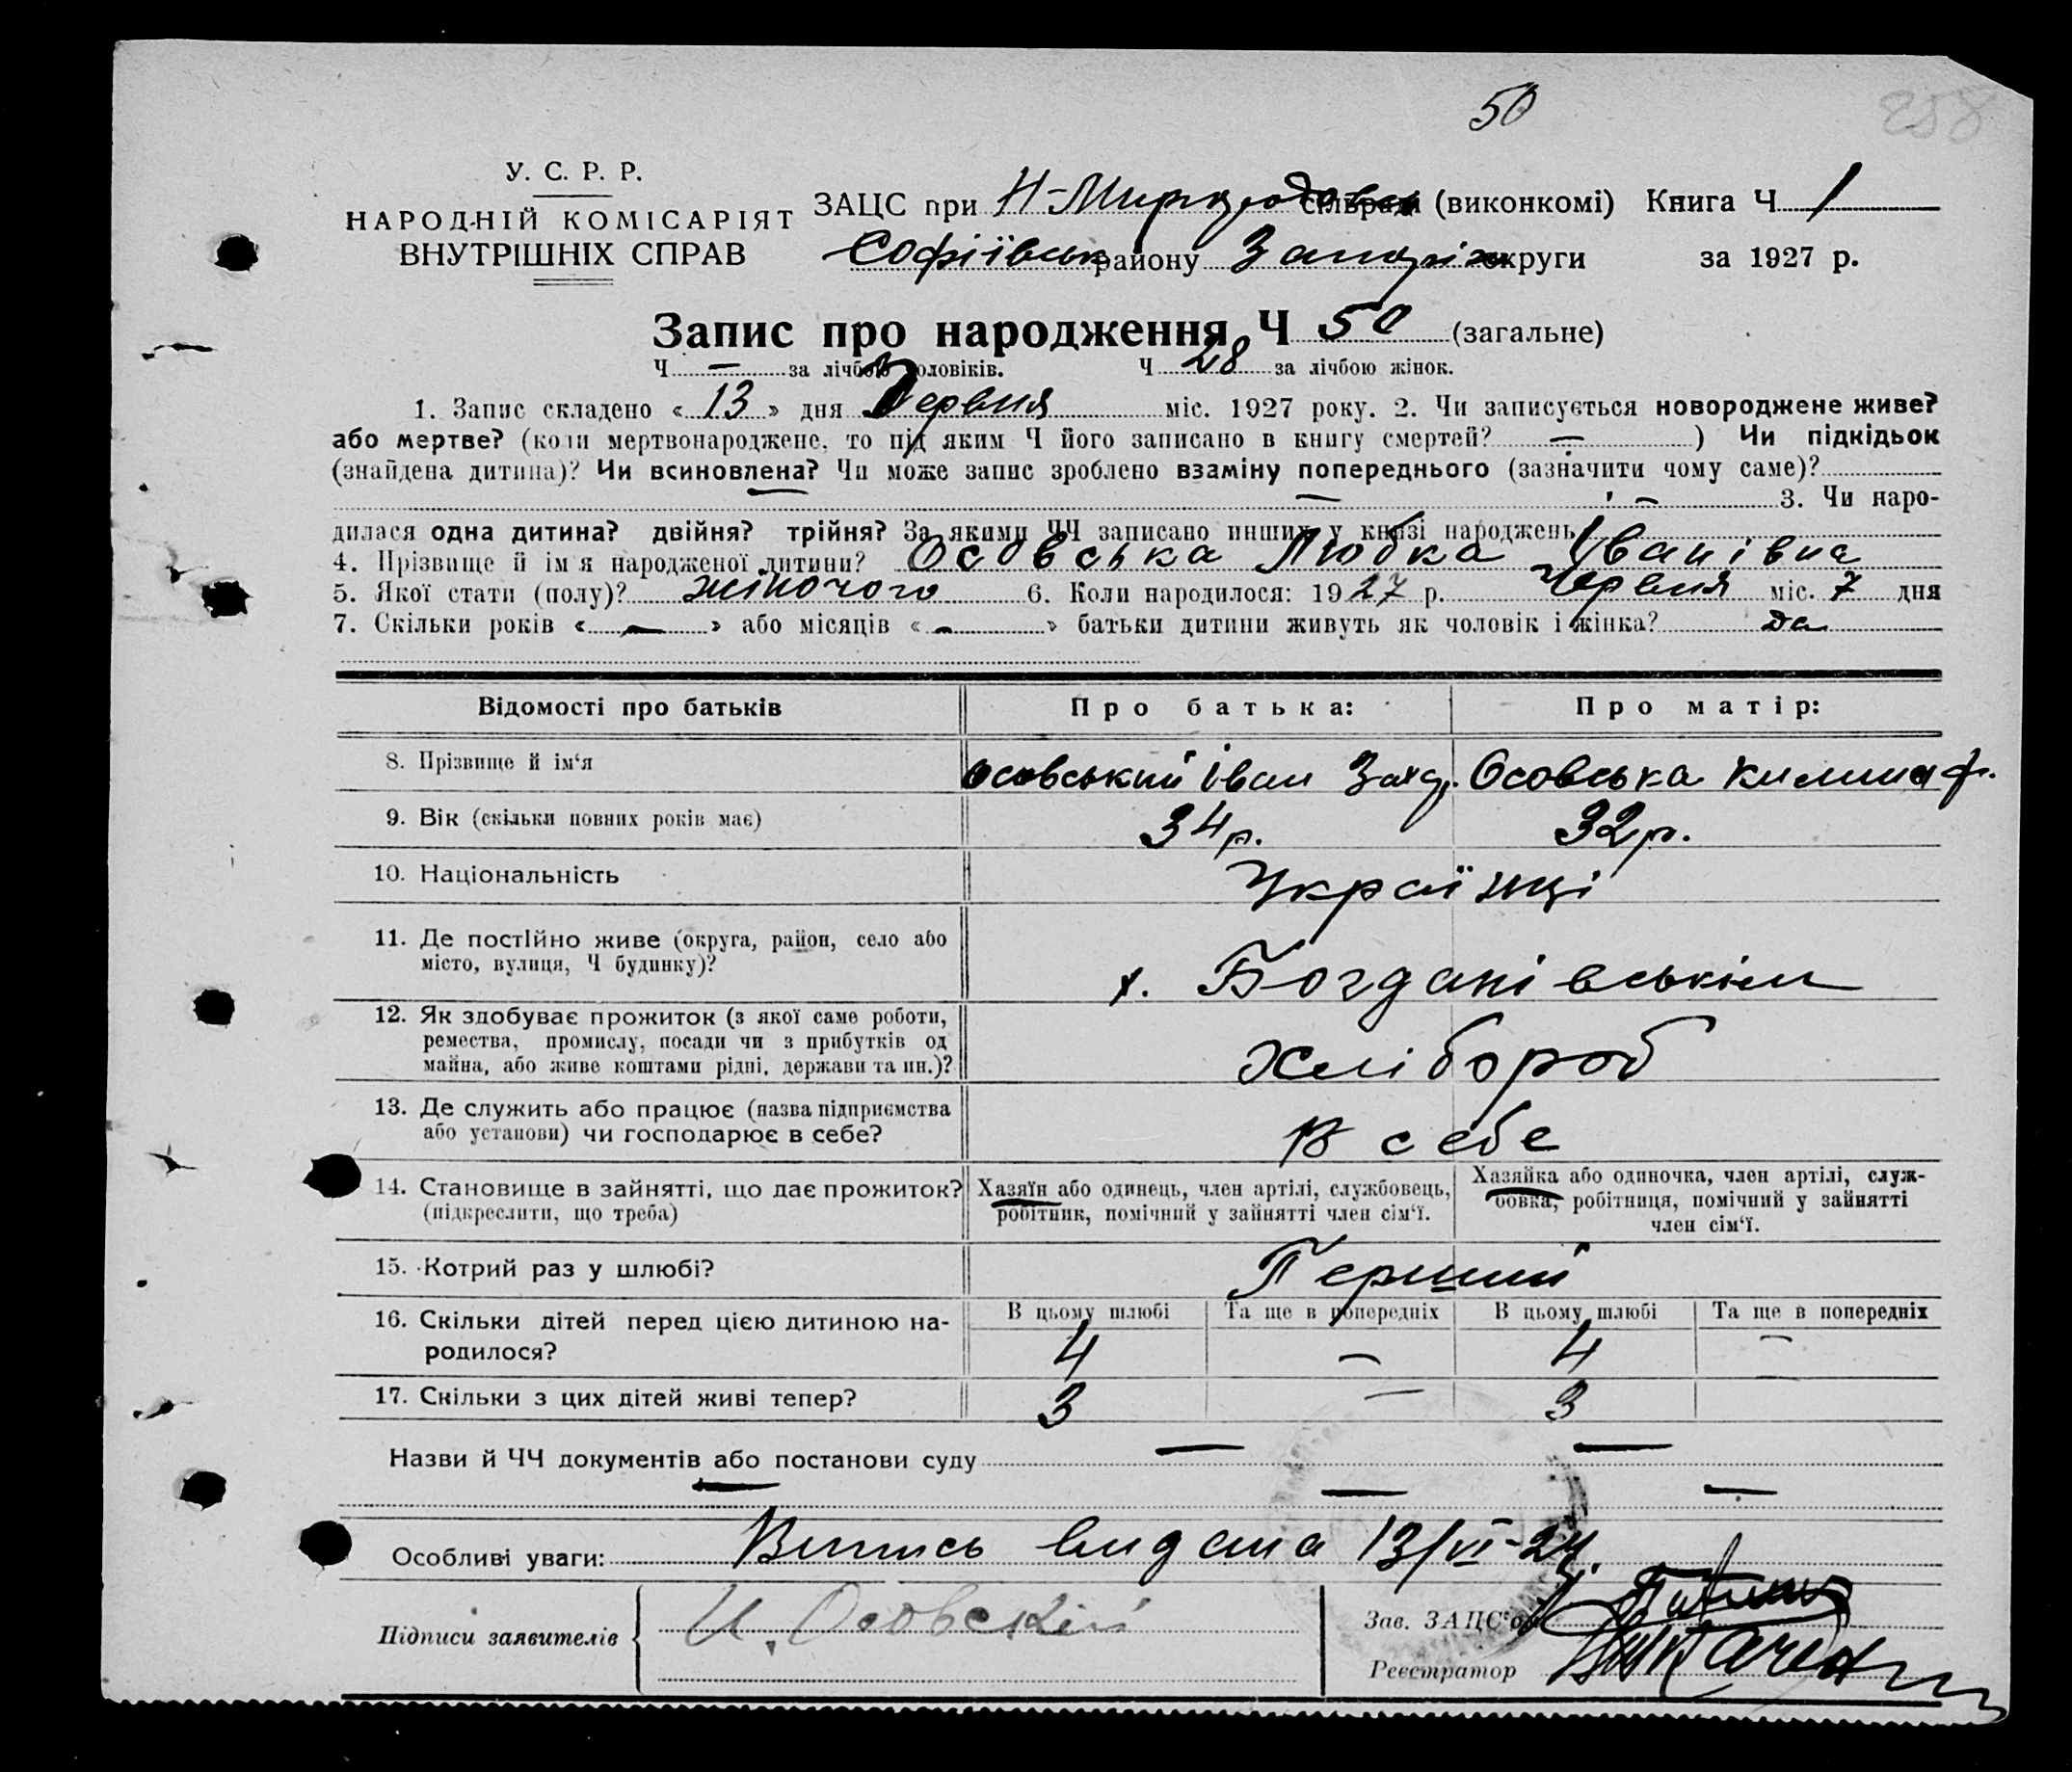 50
258
У. С. Р. Р.
НАРОДНІЙ КОМІСАРІЯТ
ВНУТРІШНІХ СПРАВ
ЗАЦС при сільраді (виконкомі) Книга Ч 1
Софіївськ району Запоріж округи за 1927 р.
Запис про народження Ч 50 (загальне)
Ч — за лічбою чоловіків. Ч 28 за лічбою жінок.
1. Запис складено « 13 » дня Червня міс. 1927 року. 2. Чи записується новороджене живе?
або мертве? (коли мертвонароджене, то під яким Ч його записано в книгу смертей? — ) Чи підкідьок
(знайдена дитина)? Чи всиновлена? Чи може запис зроблено взаміну попереднього (зазначити чому саме)?
— — — 3. Чи наро-
дилася одна дитина? двійня? трійня? За якими ЧЧ записано инших у книзі народжень
4. Прізвище й ім'я народженої дитини? Осовська Любка Іванівна
5. Якої стати (полу)? жіночого 6. Коли народилося: 1927 р. Червня міс. 7 дня
7. Скільки років « — » або місяців « — » батьки дитини живуть як чоловік і жінка? да
Відомості про батьків Про батька: Про матір:
8. Прізвище й ім'я Осовський Іван Зах. Осовська
9. Вік (скільки повних років має) 34 р. 32 р.
10. Національність Українці
11. Де постійно живе (округа, район, село або
місто, вулиця, Ч будинку)? х. Богданівськім
12. Як здобуває прожиток (з якої саме роботи,
ремества, промислу, посади чи з прибутків од
майна, або живе коштами рідні, держави та ин.)? Хлібороб
13. Де служить або працює (назва підприємства
або установи) чи господарює в себе? В себе
14. Становище в зайнятті, що дає прожиток?
(підкреслити, що треба)
Хазяїн або одинець, член артілі, службовець,
робітник, помічний у зайнятті член сім'ї.
Хазяйка або одиночка, член артілі, служ-
бовка, робітниця, помічний у зайнятті
член сім'ї.
15. Котрий раз у шлюбі? Перший
16. Скільки дітей перед цією дитиною на-
родилося?
В цьому шлюбі Та ще в попередніх В цьому шлюбі Та ще в попередніх
4 — 4 —
17. Скільки з цих дітей живі тепер? 3 — 3
Назви й ЧЧ документів або постанови суду — —
— — —
Особливі уваги: Випись видана 13/VI-27.
Підписи заявителів И. Осовский
Зав. ЗАЦС'ом
Реєстратор